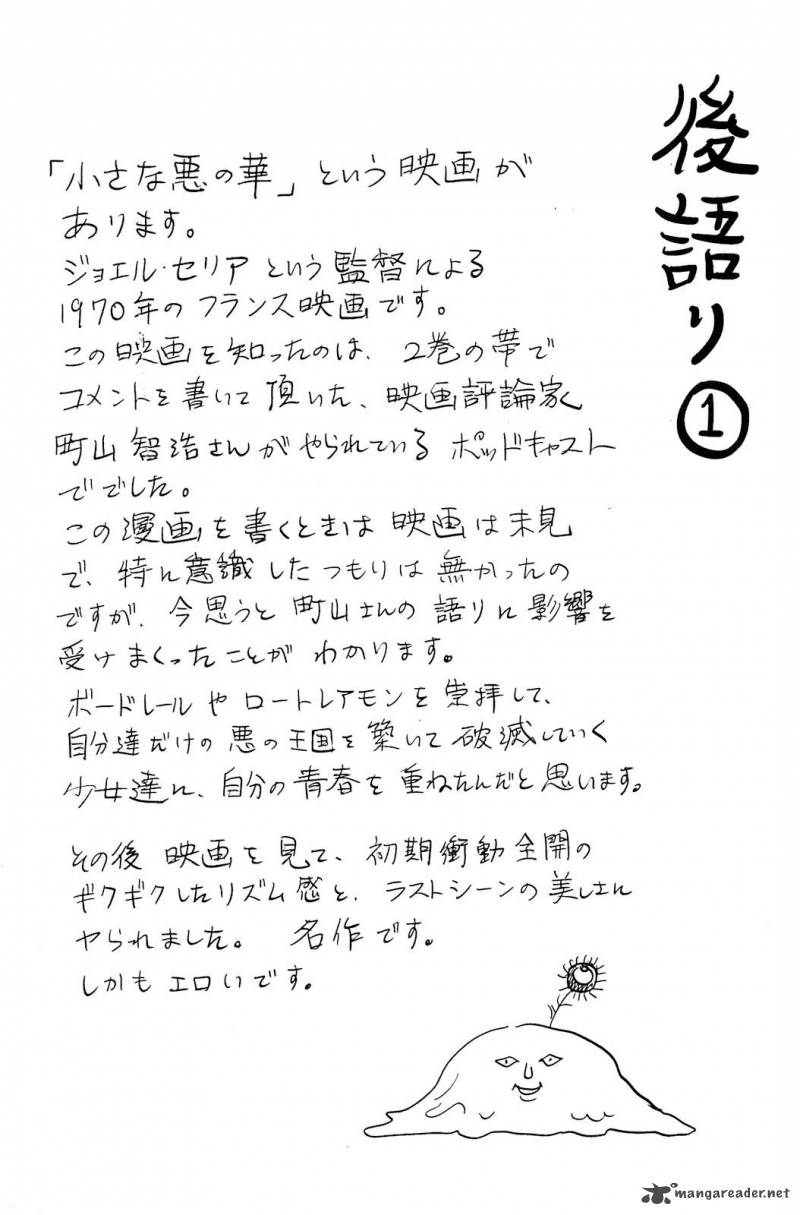 後語り①
「小さな悪の華」という映画が
あります。
ジョエル・セリアという監督による
1970年のフランス映画です。
この映画を知ったのは、2巻の帯で
コメントを書いて頂いた、映画評論家
町山智浩さんがやられているポッドキャスト
ででした。
この漫画を書くときは映画は未見
で、特に意識したつもりは無かったの
ですが、今思うと町山さんの語りに影響を
受けまくったことがわかります。
ボードレールやロートレアモンを崇拝して、
自分達だけの悪の王国を築いて破滅していく
少女達に、自分の青春を重ねたんだと思います。
その後映画を見て、初期衝動全開の
ギクギクしたリズム感と、ラストシーンの美しさに
ヤられました。 名作です。
しかもエロいです。
mangareader.net